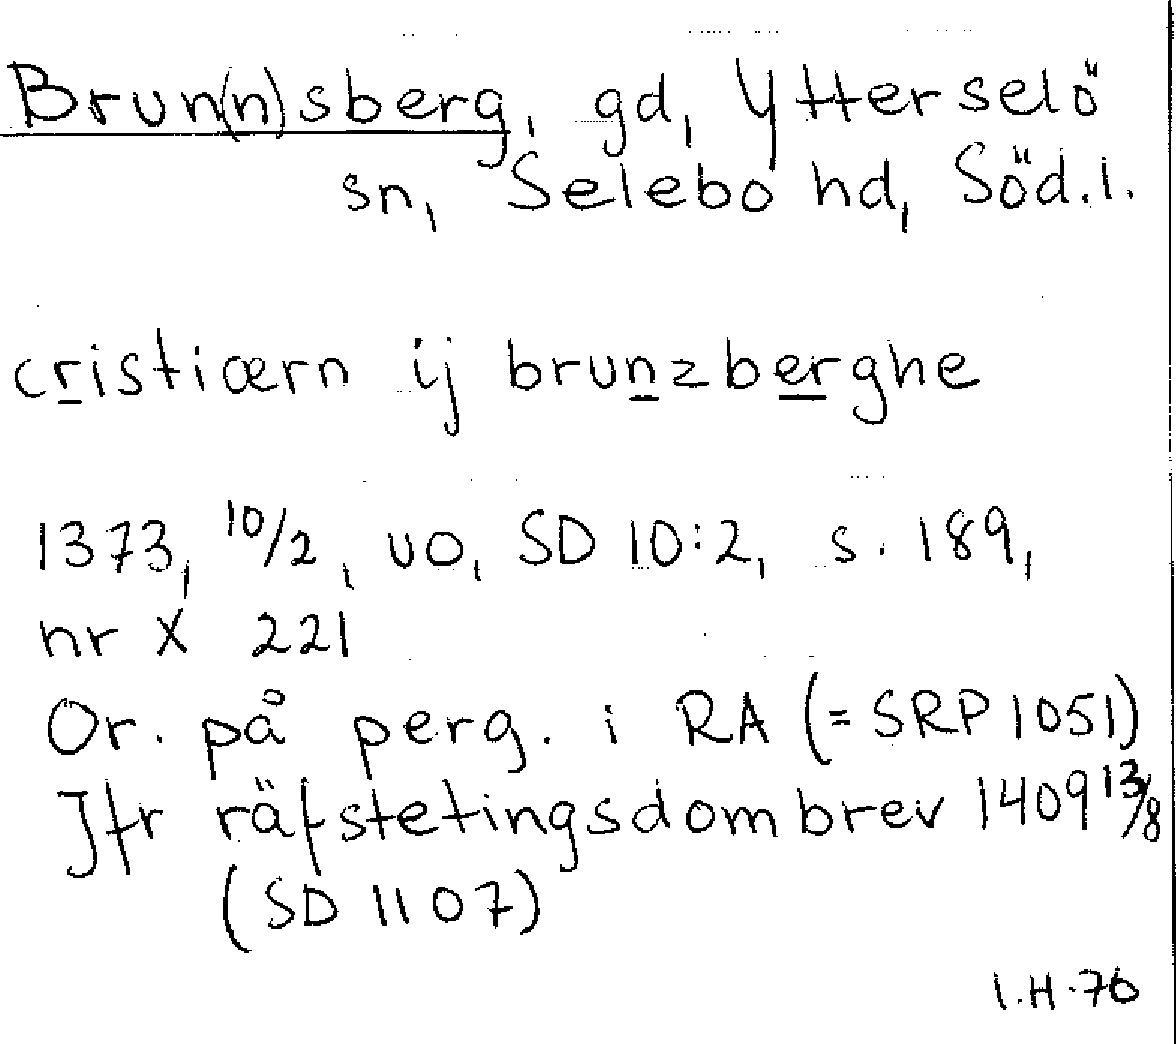 Brun(n)sberg, gd, Ytterselö
sn, Selebo hd, Söd.l.
cristiærn ij brunzberghe
1373, 10/2, uo, SD 10:2, s. 189,
nr X 221
Or. på perg. i RA (= SRP 1051)
Jfr räfstetingsdombrev 1409 13/8
(SD 1107)
I.H.76